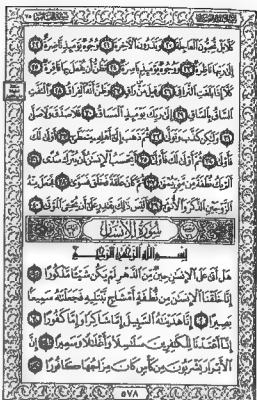 كَلَّا بَلْ تُحِبُّونَ ٱلْعَاجِلَةَ ٢٠ وَتَذَرُونَ ٱلْـَٔاخِرَةَ ٢١ وُجُوهٌ يَوْمَئِذٍ نَّاضِرَةٌ ٢٢
إِلَىٰ رَبِّهَا نَاظِرَةٌ ٢٣ وَوُجُوهٌ يَوْمَئِذٍۭ بَاسِرَةٌ ٢٤ تَظُنُّ أَن يُفْعَلَ بِهَا فَاقِرَةٌ ٢٥
كَلَّآ إِذَا بَلَغَتِ ٱلتَّرَاقِىَ ٢٦ وَقِيلَ مَنْ ۜ رَاقٍ ٢٧ وَظَنَّ أَنَّهُ ٱلْفِرَاقُ ٢٨ وَٱلْتَفَّتِ
ٱلسَّاقُ بِٱلسَّاقِ ٢٩ إِلَىٰ رَبِّكَ يَوْمَئِذٍ ٱلْمَسَاقُ ٣٠ فَلَا صَدَّقَ وَلَا صَلَّىٰ
٣١ وَلَٰكِن كَذَّبَ وَتَوَلَّىٰ ٣٢ ثُمَّ ذَهَبَ إِلَىٰٓ أَهْلِهِۦ يَتَمَطَّىٰٓ ٣٣ أَوْلَىٰ لَكَ
فَأَوْلَىٰ ٣٤ ثُمَّ أَوْلَىٰ لَكَ فَأَوْلَىٰٓ ٣٥ أَيَحْسَبُ ٱلْإِنسَٰنُ أَن يُتْرَكَ سُدًى ٣٦
أَلَمْ يَكُ نُطْفَةً مِّن مَّنِىٍّ يُمْنَىٰ ٣٧ ثُمَّ كَانَ عَلَقَةً فَخَلَقَ فَسَوَّىٰ ٣٨ فَجَعَلَ مِنْهُ
ٱلزَّوْجَيْنِ ٱلذَّكَرَ وَٱلْأُنثَىٰٓ ٣٩ أَلَيْسَ ذَٰلِكَ بِقَٰدِرٍ عَلَىٰٓ أَن يُحْـِۧىَ ٱلْمَوْتَىٰ ٤٠
سُورَةُ الإِنسَانِ
بِسْمِ ٱللَّهِ ٱلرَّحْمَٰنِ ٱلرَّحِيمِ
هَلْ أَتَىٰ عَلَى ٱلْإِنسَٰنِ حِينٌ مِّنَ ٱلدَّهْرِ لَمْ يَكُن شَيْـًٔا مَّذْكُورًا ١
إِنَّا خَلَقْنَا ٱلْإِنسَٰنَ مِن نُّطْفَةٍ أَمْشَاجٍ نَّبْتَلِيهِ فَجَعَلْنَٰهُ سَمِيعًۢا
بَصِيرًا ٢ إِنَّا هَدَيْنَٰهُ ٱلسَّبِيلَ إِمَّا شَاكِرًا وَإِمَّا كَفُورًا ٣
إِنَّآ أَعْتَدْنَا لِلْكَٰفِرِينَ سَلَٰسِلَا۟ وَأَغْلَٰلًا وَسَعِيرًا ٤ إِنَّ
ٱلْأَبْرَارَ يَشْرَبُونَ مِن كَأْسٍ كَانَ مِزَاجُهَا كَافُورًا ٥
٥٧٨